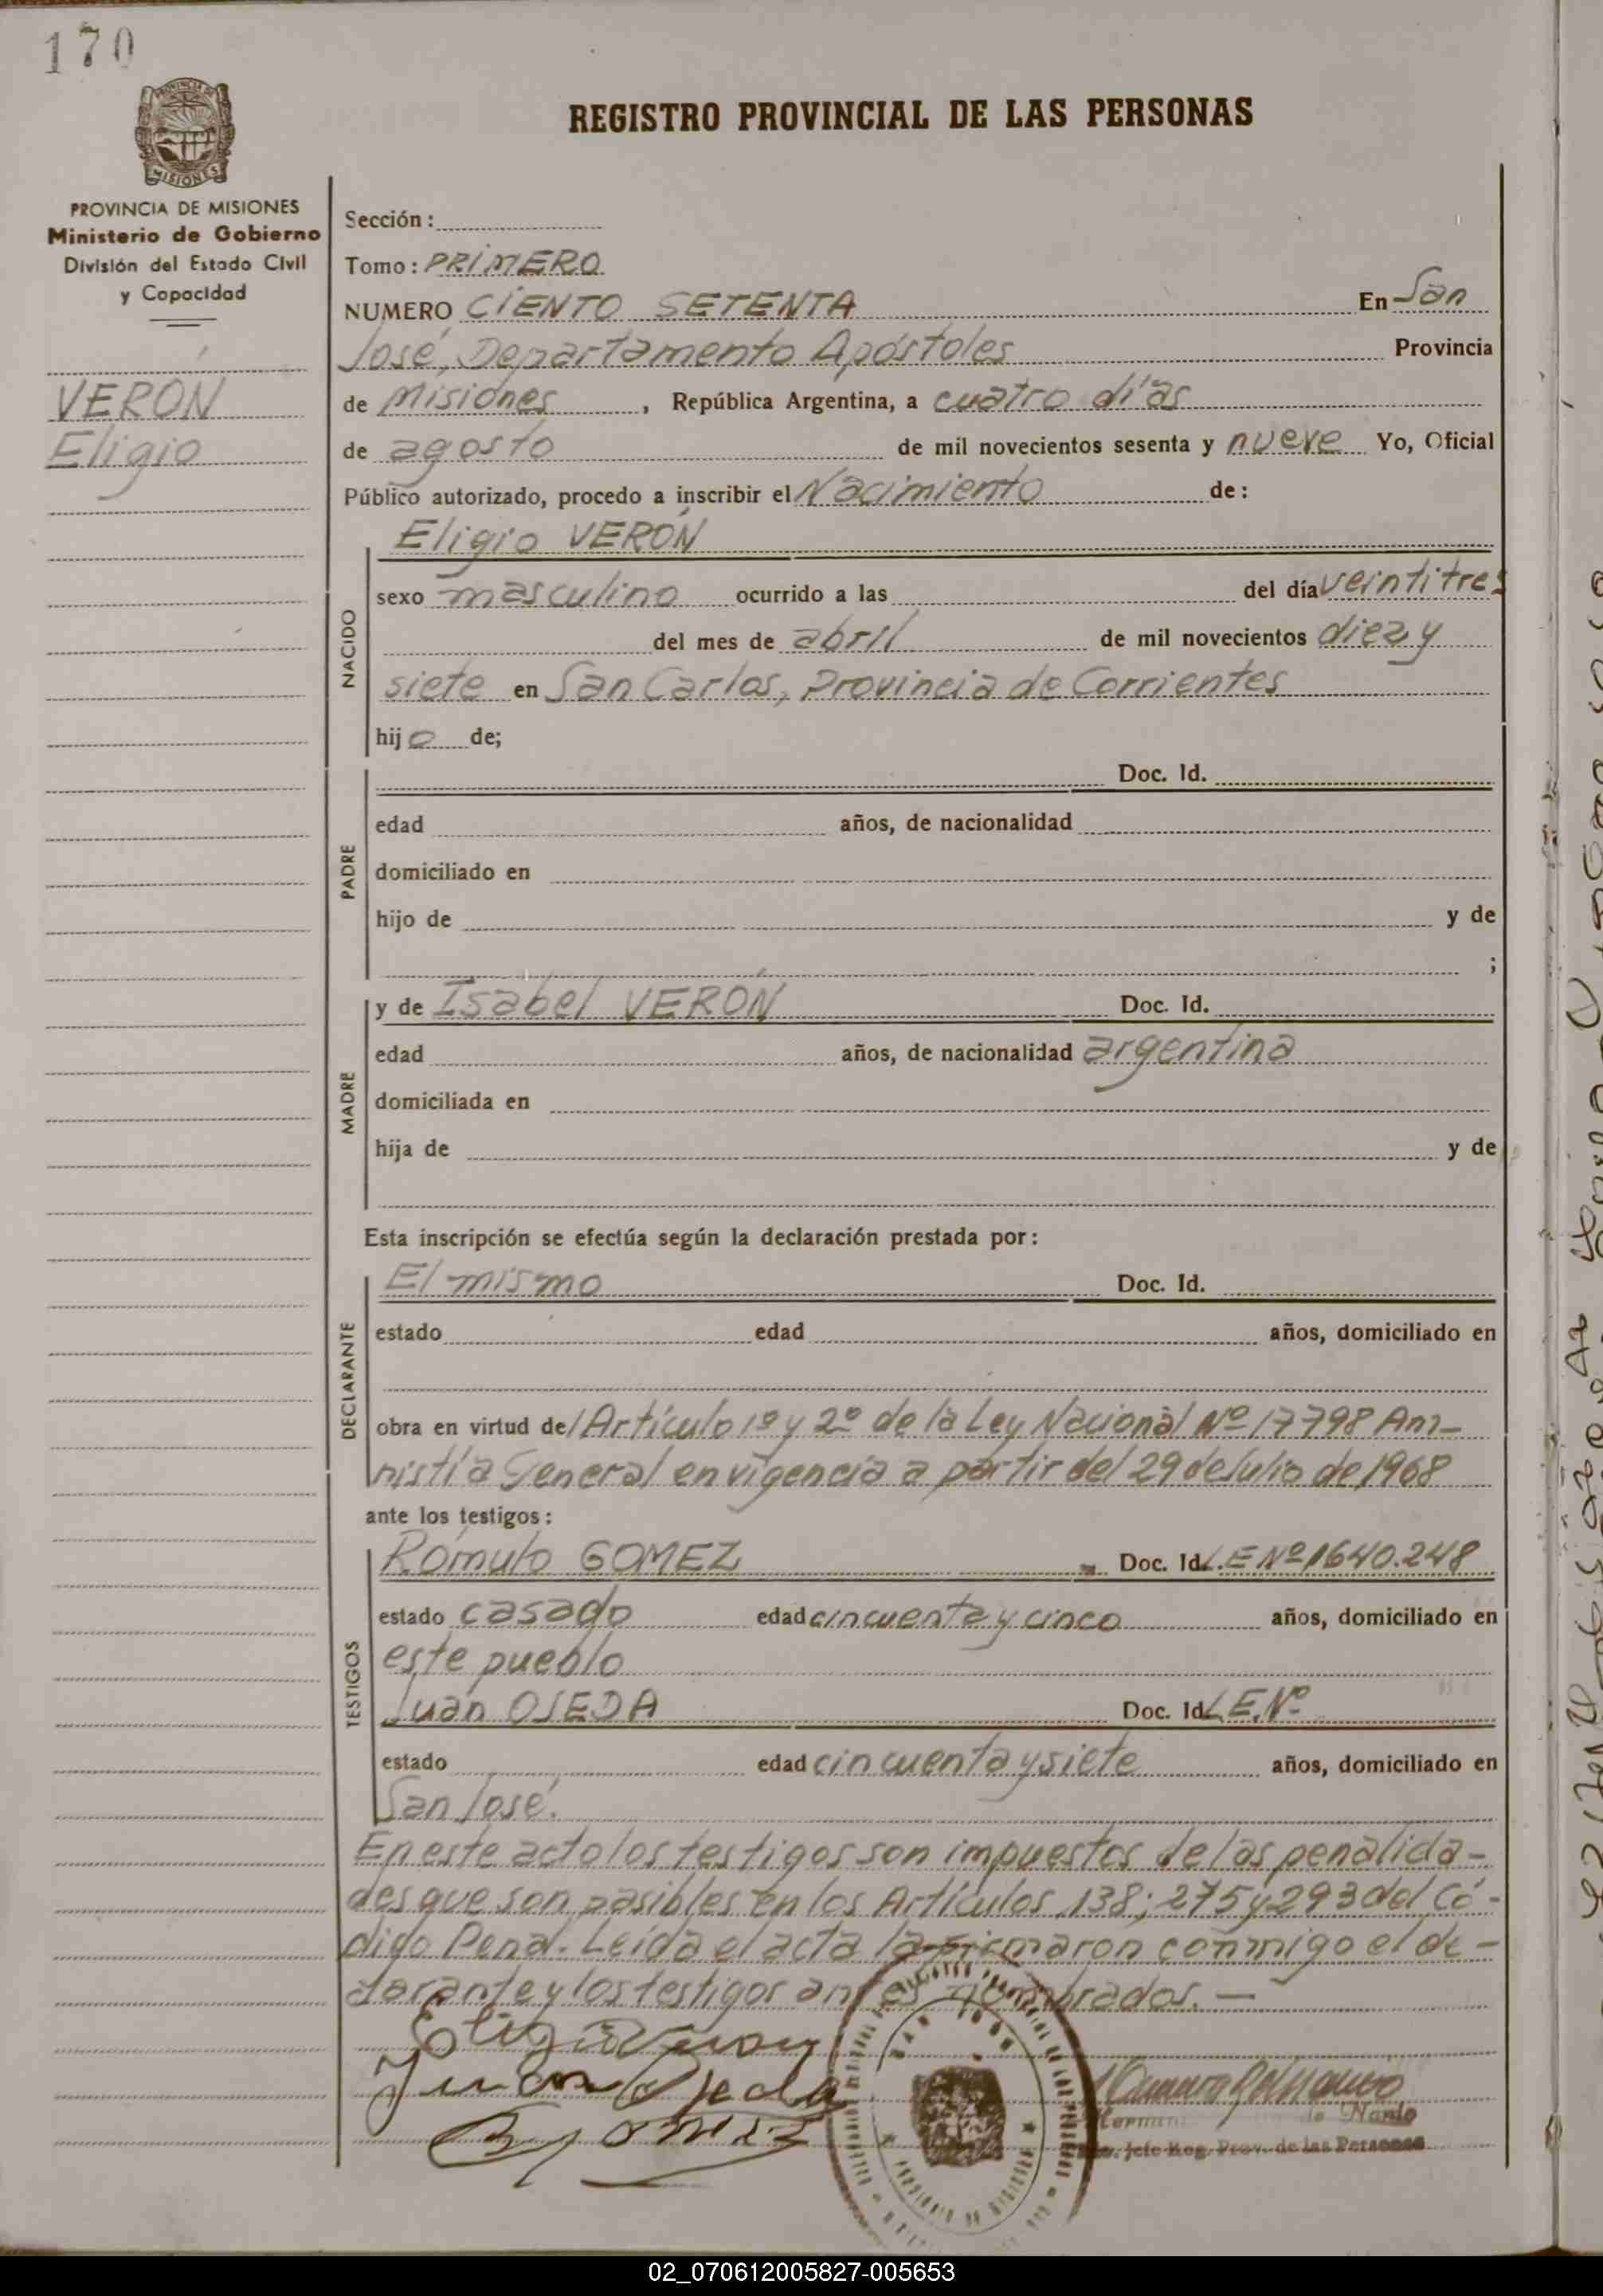 170
REGISTRO PROVINCIAL DE LAS PERSONAS
MISIONES
PROVINCIA DE MISIONES
Ministerio de Gobierno
División del Estado Civil
y Capacidad
VERÓN
Eligio
Sección :
Tomo : PRIMERO
NUMERO CIENTO SETENTA En San
José, Departamento Apóstoles Provincia
de Misiones , República Argentina, a cuatro días
de agosto de mil novecientos sesenta y nueve Yo, Oficial
Público autorizado, procedo a inscribir el Nacimiento de :
Eligio VERÓN
NACIDO
sexo masculino ocurrido a las del día veintitres
del mes de abril de mil novecientos diez y
siete en San Carlos, Provincia de Corrientes
hijo de;
PADRE
Doc. Id.
edad años, de nacionalidad
domiciliado en
hijo de y de
;
MADRE
y de Isabel VERÓN Doc. Id.
edad años, de nacionalidad argentina
domiciliada en
hija de y de
Esta inscripción se efectúa según la declaración prestada por :
DECLARANTE
El mismo Doc. Id.
estado edad años, domiciliado en
obra en virtud del Artículo 1º y 2º de la Ley Nacional Nº 17798 Am-
nistía General en vigencia a partir del 29 de Julio de 1968
ante los testigos :
TESTIGOS
Rómulo GOMEZ Doc. Id. L.E Nº 1640.248
estado casado edad cincuenta y cinco años, domiciliado en
este pueblo
Juan OJEDA Doc. Id L.E.Nº
estado edad cincuenta y siete años, domiciliado en
San José.
En este acto los testigos son impuestos de las penalida-
des que son pasibles en los Artículos 138; 275 y 293 del Có-
digo Penal. Leída el acta la firmaron conmigo el de-
clarante y los testigos antes nombrados. —
Eligio Veron
Juan Ojeda
R Gomez
Jefe Reg. Prov. de las Personas
02_070612005827-005653